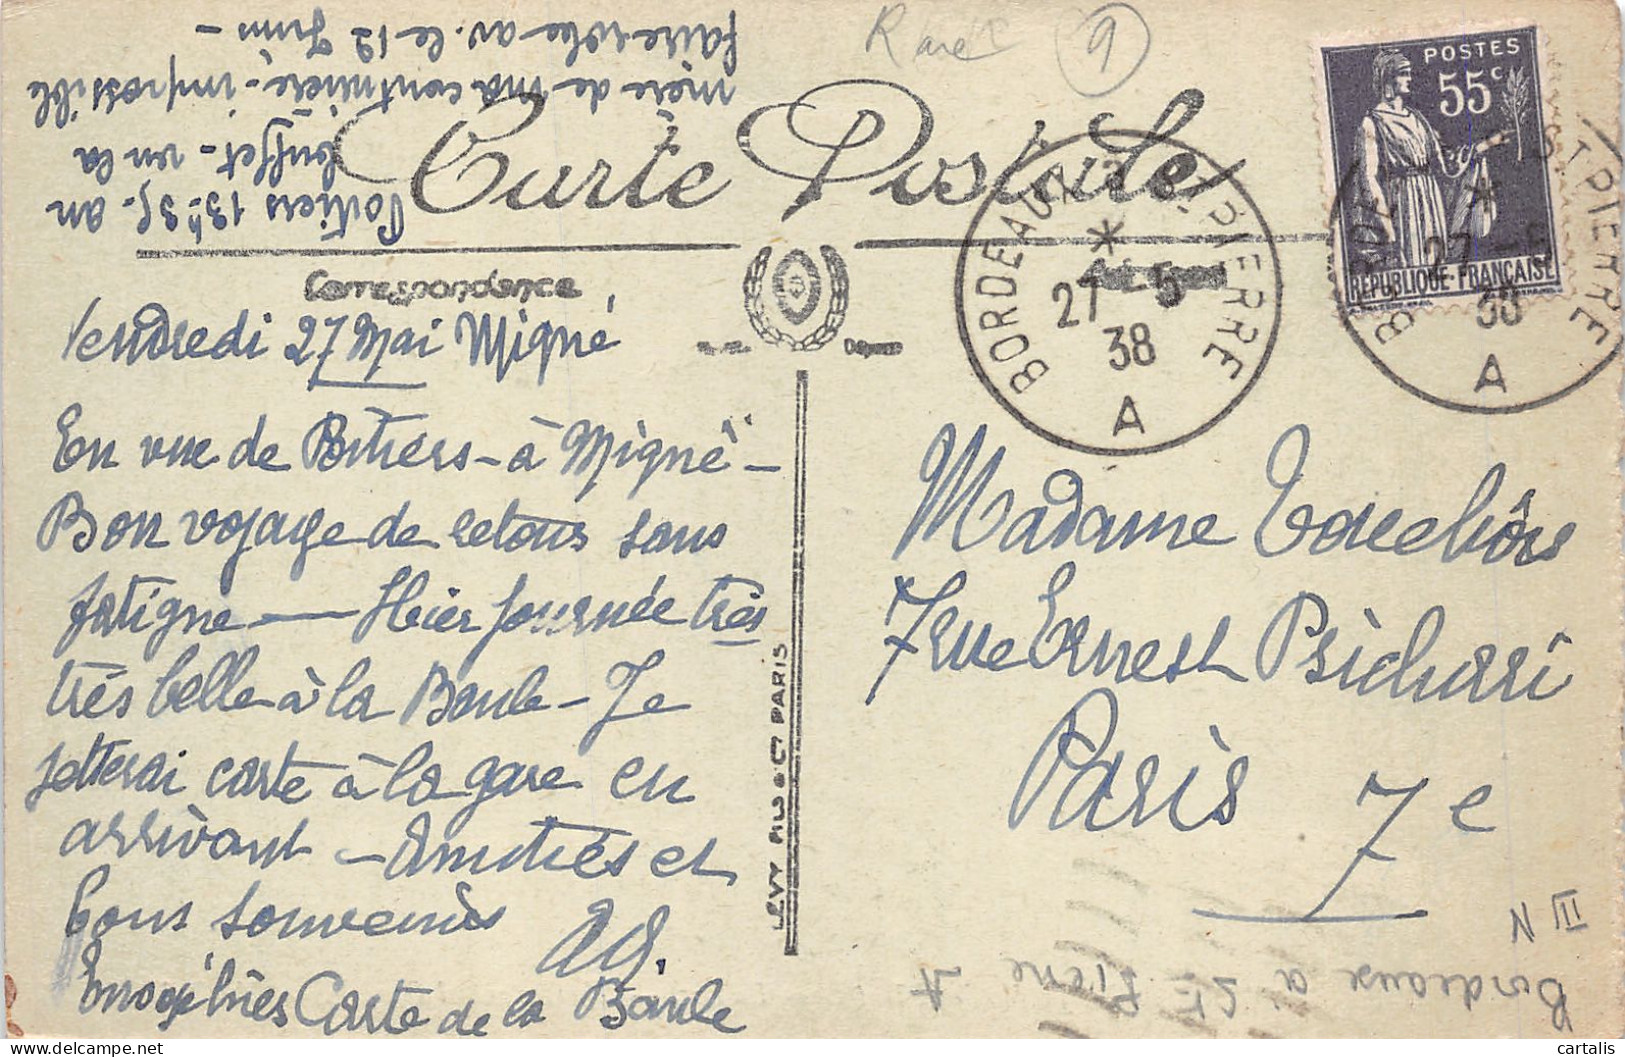 Rare 9
Poitiers 13h 35. au
buffet - vu la
mère de ma couturière - impossible
faire robe av. le 12 Juin -
Carte Postale
Correspondance
POSTES
55c
REPUBLIQUE FRANÇAISE
BORDEAUX A ST PIERRE
27 - 5
38
A
BORDEAUX A ST PIERRE
27 - 5
38
A
Vendredi 27 Mai Migné
En vue de Poitiers - à Migné -
Bon voyage de retour sans
fatigue — Hier journée très
très belle à la Baule - Je
jetterai carte à la gare en
arrivant - Amitiés et
bons souvenirs
Carte de la Baule
Madame
7 rue Ernest Psichari
Paris 7e
LEVY PARIS
III N
Bordeaux a St Pierre A
cartalis